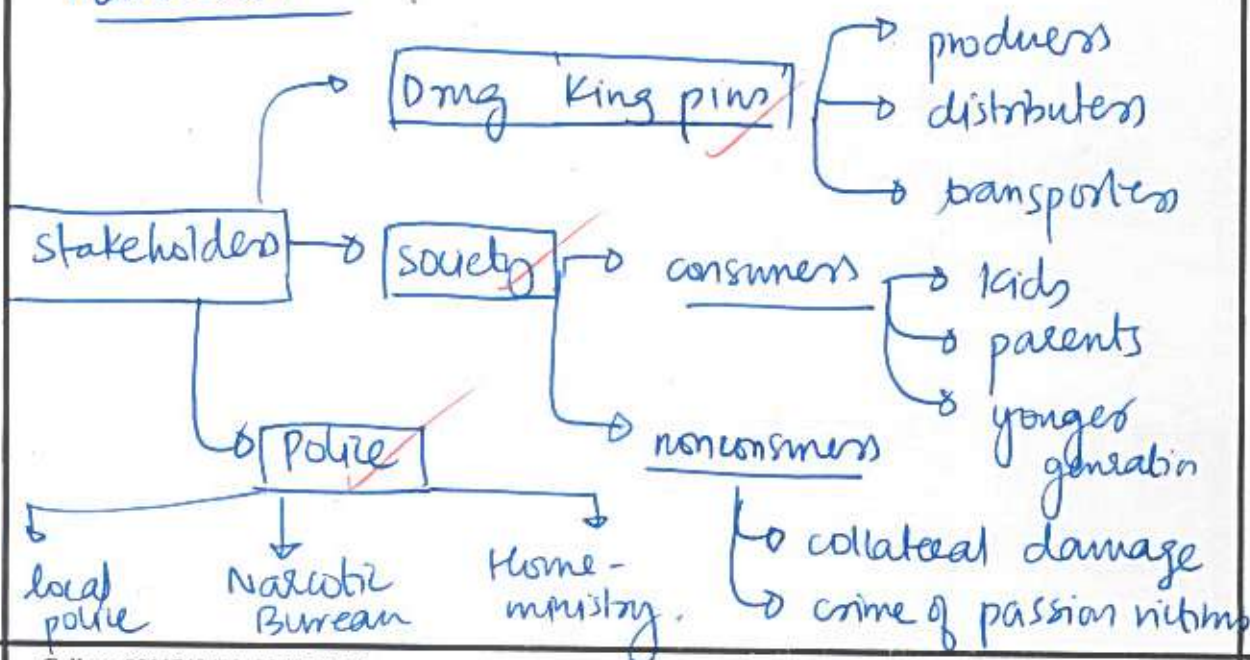 Drug 'King pins'
producers
distributers
transporters
stakeholders
society
consumers
kids
parents
yonger
genration
Police
nonconsumers
collateral damage
crime of passion victims
local
police
Narcotic
Bureau
Home-
ministry.